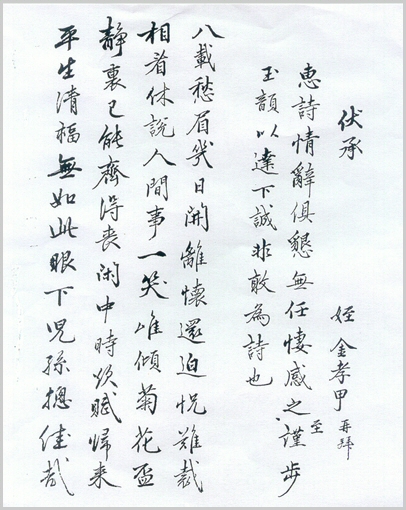 伏承
姪 金孝甲 再拜
惠詩情辭俱懇無任悽感之至謹步
玉韻以達下誠非敢為詩也
八載愁眉幾日開離懷還迫悅難裁
相看休說人間事一笑唯傾菊花盃
静裏已能齊得丧閑中時欲賦歸来
平生清福無如此眼下児孫摠佳哉